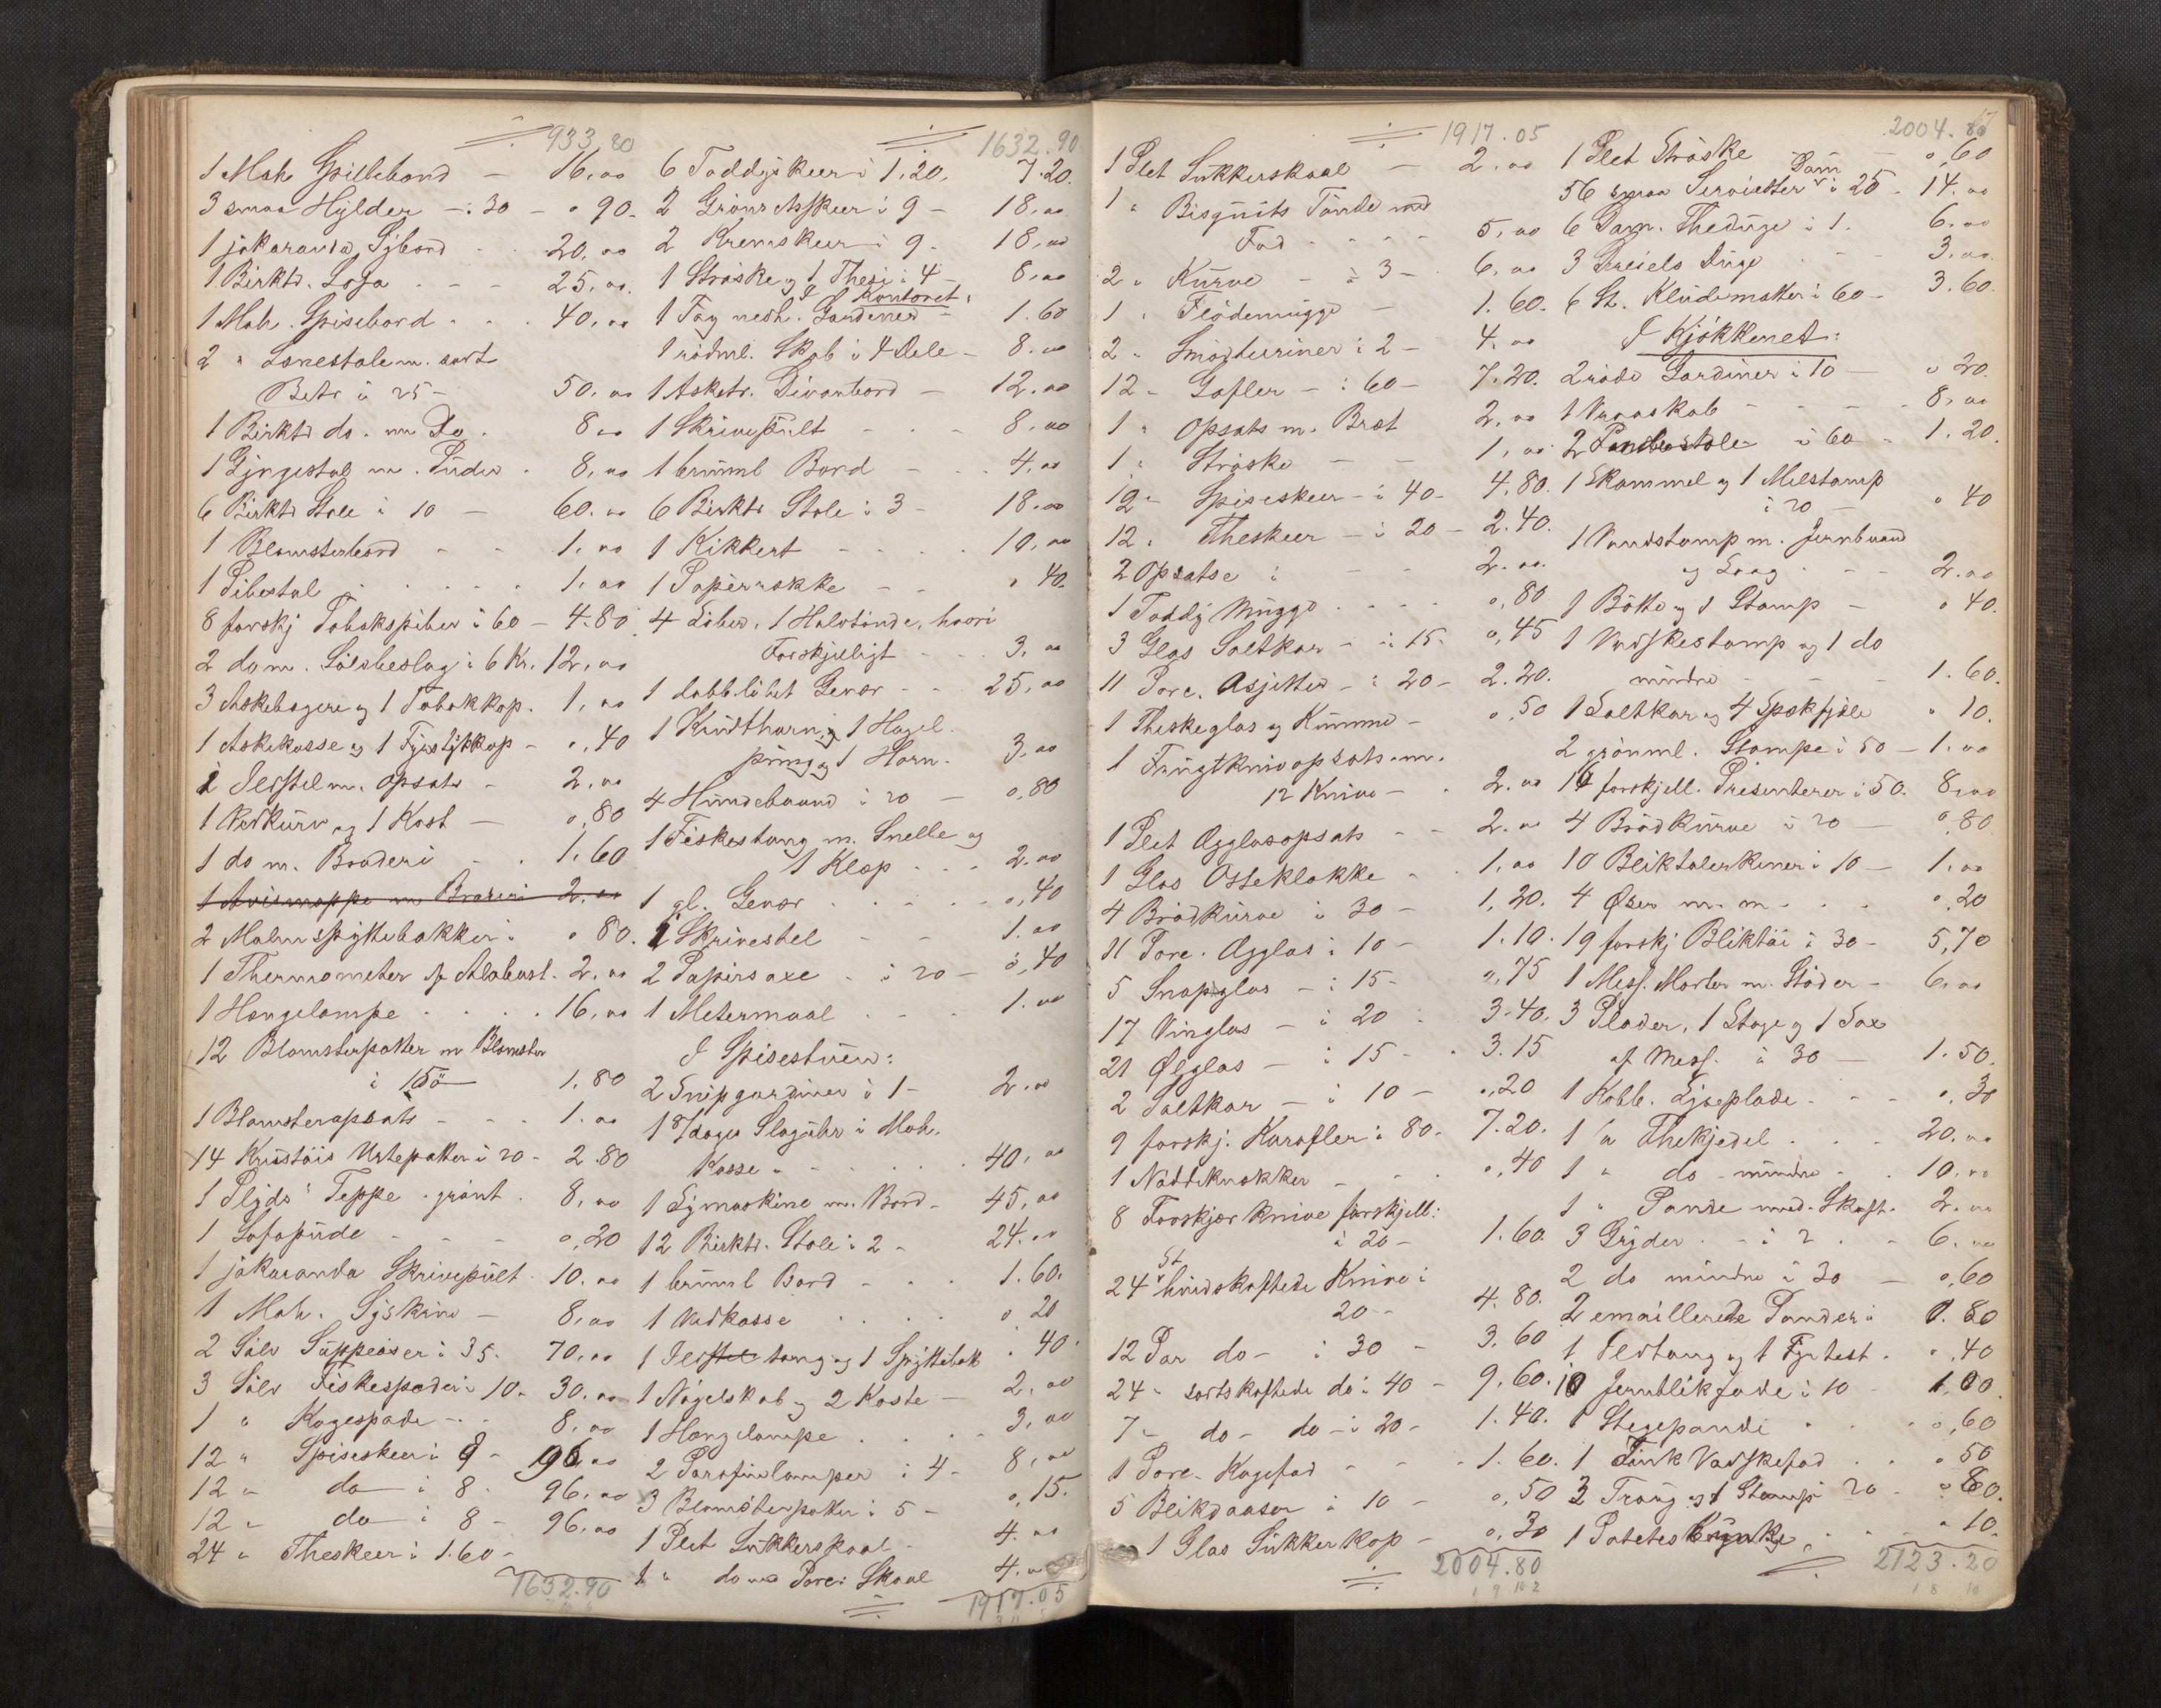 933.80
1 Mah. Spillebord – 16,00
3 smaa Hylder – à 30 – " 90
1 jakaranda Sybord 20,00
1 Birktr. Sofa - - - 25,00
1 Mah. Spisebord - - 40,00
2 " Lænestole m. sort
Betr. à 25 – 50,00
1 Birktr do. m Do. 8 00
1 Gyngestol m. Puder - 8,00
6 Birktr Stole à 10 – 60,00
1 Blomsterbord - - 1,00
1 Pibestol - - - 1,00
8 forskj Tobakspiber à 60 – 4.80
2 do m. Sølvbeslag à 6 Kr. 12,00
3 Askebægere og 1 Tobakkop. 1,00
1 Askekasse og 1 Fyrstykkop – 0,40
1 Ildstel m. Opsats – 2,00
1 Vedkurv og 1 Kost – 0,80
1 do m. Broderi - - 1.60
1 Avismappe m Broderi 2,00
2 Malm Spyttebakker à " 80.
1 Thermometer af Alabast. 2,00
1 Hængelampe - - - 16,00
12 Blomsterpotter m Blomster
à 15 ø 1.80
1 Blomsteropsats - - - 1.00
14 Krustøis Urtepotter à 20 - 2.80
1 Plyds " Teppe - grønt - 8,00
1 Sofapude - - - 0,20
1 jakaranda Skrivepult 10.00
1 Mah. Syskrin – 8,00
2 Sølv Suppeøser à 35. 70,00
3 Sølv Fiskespader à 10. 30.00
1 " Kagespade - - 8,00
12 " Spiseskeer à 9 – 96,00
12 " do à 8 - 96,00
12 " do à 8 - 96,00
24 " Theskeer à 1.60 -
1632.90
1632.90
6 Toddyskeer à 1,20. 7.20.
2 Grønsagsskeer à 9 – 18,00
2 Kremskeer à 9. 18,00
1 Strøske og 1 Thesi à 4 – 8,00
I Kontoret:
1 Fag nedh. Gardiner – 1.60
1 rødml. Skab i 4 Dele – 8.00
1 Asketr. Divanbord – 12.00
1 Skrivepult - - - 8,00
1 brunml Bord - - - 4,00
6 Birktr Stole à 3 – 18.00
1 Kikkert - - - 10,00
1 Papirrokke – " 40.
4 Løber, 1 Halvtønde, hvori
Forskjelligt - - 3,00
1 dobbløbet Gevær - - 25,00
1 Krudthorn og 1 Hagel-
pung og 1 Horn. 3,00
4 Hundebaand à 20 – 0,80
1 Fiskestang m. Snelle og
1 Klep - - - 2,00
1 gl. Gevær - - - 0,40
1 Skrivestel - - 1.00
2 Papirsaxe - à 20 – 0,40
1 Metermaal - - 1.00
I Spisestuen:
2 Snipgardiner à 1 – 2.00
1 8/dages Slaguhr i Mah.
Kasse - - - 40,00
1 Symaskine m. Bord - 45,00
12 Birktr. Stole à 2 - 24.00
1 brunml Bord - - 1.60.
1 Vedkasse - - - 0 20
1 Ildtang og 1 Spyttebak " 40.
1 Nøgelskab og 2 Koste – 2,00
1 Hængelampe - - - 3,00
2 Parafinlamper à 4 - 8,00
3 Blomsterpotter à 5 – 0,15.
1 Plet Sukkerskaal - 4.00
1 " do med Porc. Skaal 4.00
1917.05
1917.05
1 Plet Sukkerskaal – 2.00
1 " Bisquits Tønde med
Fad - - - - 5,00
2 " Kurve – à 3 – 6,00
1 " Flødemugge – 1.60.
2 " Smørterriner à 2 – 4.00
12 " Gafler – à 60 – 7.20.
1 " Opsats m. Bræt 2,00
1 " Strøske – – 1,00
12 " Spiseskeer – à 40 – 4.80.
12 " Theskeer – à 20 – 2.40.
2 Opsatse à - - 2.00.
1 Toddy Mugge - - - 0,80
3 Glas Saltkar – à 15. 0,45
11 Porc. Asjetter – à 20 – 2.20.
1 Theskeglas og Kumme – 0,50
1 Frugtknivopsats m.
12 Knive – - 2.00
1 Plet Ægglasopsats - - 2.00
1 Glas Osteklokke - - 1.00
4 Brødkurve à 30 – 1,20.
11 Porc. Ægglas à 10 – 1.10.
5 Snapsglas – à 15 – 0,75
17 Vinglas – à 20 - 3.40.
21 Ølglas – à 15 - - 3.15
2 Saltkar – à 10 – 0,20
9 forskj. Karafler à 80. 7.20.
1 Nøddeknækker - - - 0,40
8 Forskjær Knive forskjell:
à 20 – 1.60.
24 St hvidskaftede Knive à
20 – 4.80.
12 Par do – à 30 – 3.60
24 " sortskaftede do à 40 – 9.60.
7 " do – do – à 20 – 1.40.
1 Porc. Kagefad - - - 1.60.
5 Blikdaaser à 10 – 0,50
1 Glas Sukkerkop – 0,30
2004.80
2004.80
1 Plet Strøske – 0,60
56 smaa Dam Servietter à 25 – 14.00
6 Dam. Theduge à 1. 6.00
3 Dreiels Duge - - 3,00.
6 St. Kludematter à 60 – 3.60.
I Kjøkkenet:
2 røde Gardiner à 10 – " 20.
1 Vraaskab - - - 8,00
2 Pindestole à 60 - 1.20.
1 Skammel og 1 Melstamp
à 20 – " 40
1 Vandstamp m. Jernbaand
og Laag - - - 2.00
1 Bøtte og 1 Stamp – " 40.
1 Vadskestamp og 1 do
mindre - - - 1.60.
1 Saltkar og 4 Spækfjæle " 10.
2 grønml. Stampe à 50 – 1.00
14 forskjell. Presenterer à 50. 8,00
4 Brødkurve à 20 – 0,80
10 Bliktalerkener à 10 – 1.00
4 Øser m. m. - - - 0,20
19 forskj Bliktøi à 30 – 5,70
1 Mess. Morter m. Støder – 6,00
3 Plader, 1 Stage og 1 Sax
af Mess. à 30 – 1.50.
1 Kobb. Lyseplade - - - 0,30
1 " Thekjedel - - 20.00
1 " do – mindre - - 10.00
1 " Pande med Skaft. 2.00
3 Gryder - - à 2 - - 6.00
2 do mindre à 30 – 0,60
2 emaillerede Pander à 0.80
1 Ildtang og 1 Fyrtest - 0,40
10 Jernblikfade à 10 – 1.00.
1 Stegepande - - - 0,60
1 Zink Vadskefad - - " 50
3 Traug og 1 Stamp 20 - " 80.
1 Potetes - - " 10.
2123.20